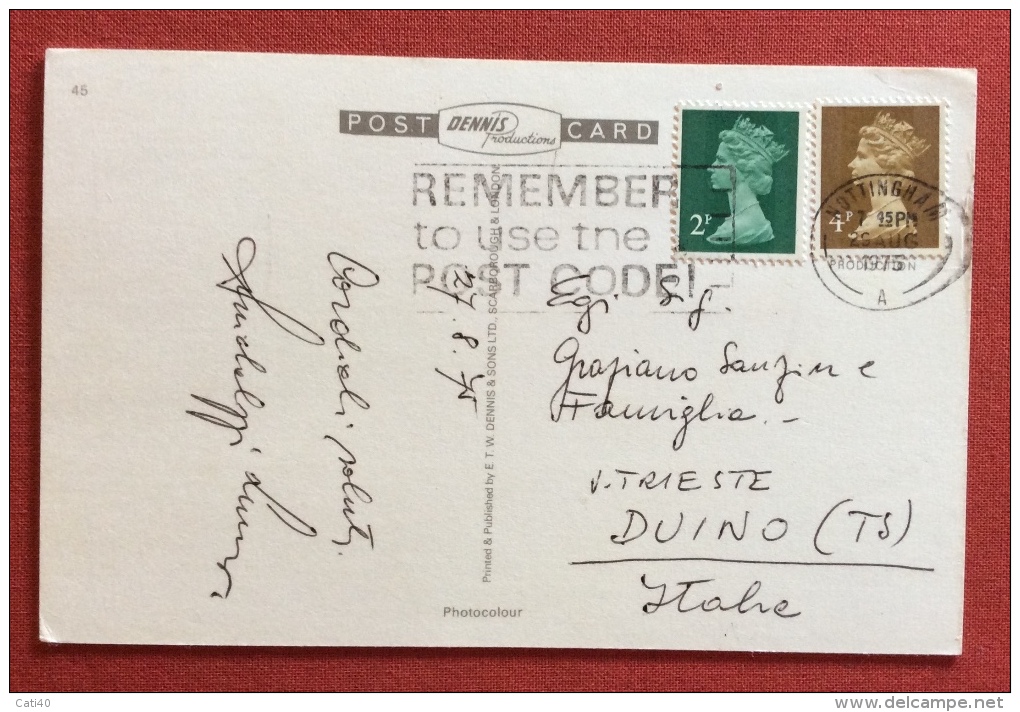 45
POST DENNIS Productions CARD
REMEMBER
to use the
POST CODE!
2P
4P
NOTTINGHAM
7 45PM
29 AUG
1975
PRODUCTION
A
Cordiali saluti.
27.8.75
Printed & Published by E. T. W. DENNIS & SONS LTD., SCARBOROUGH & LONDON
Graziano
Famiglia.
V. TRIESTE
DUINO (TS)
Italie
Photocolour
Cati40
www.delcampe.net